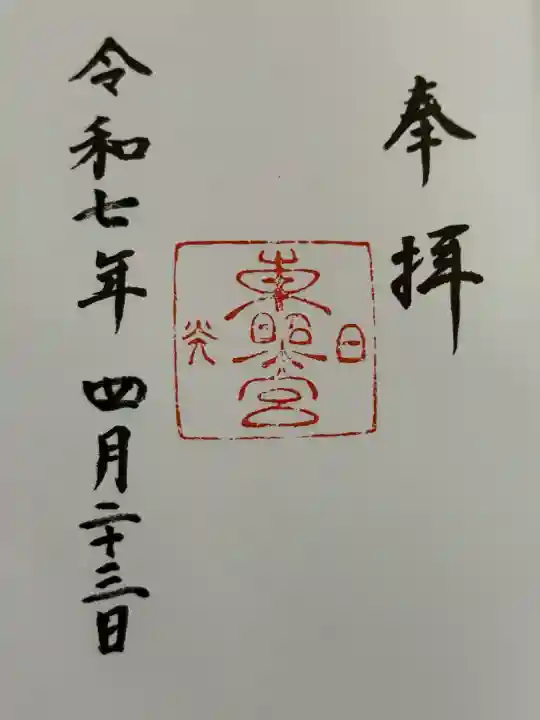 奉拝
日光
東照宮
令和七年 四月二十三日